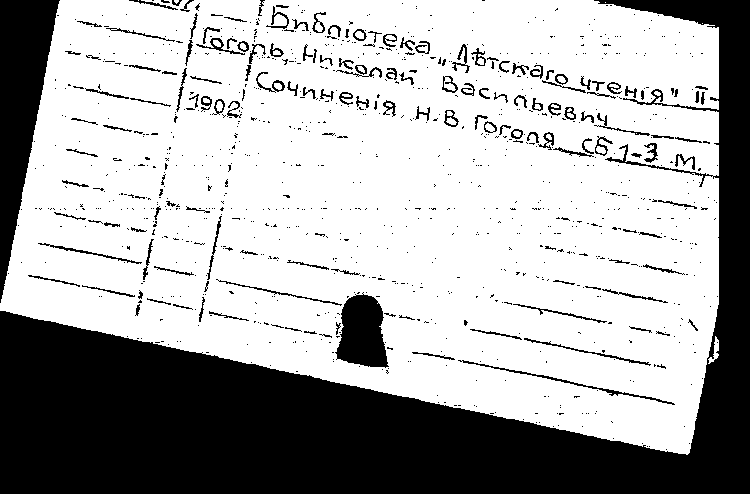 Библіотека „Дѣтскаго чтенія" II-
Гоголь, Николай Васильевич
1902 Сочиненія Н.В. Гоголя сб 1-3 М.,